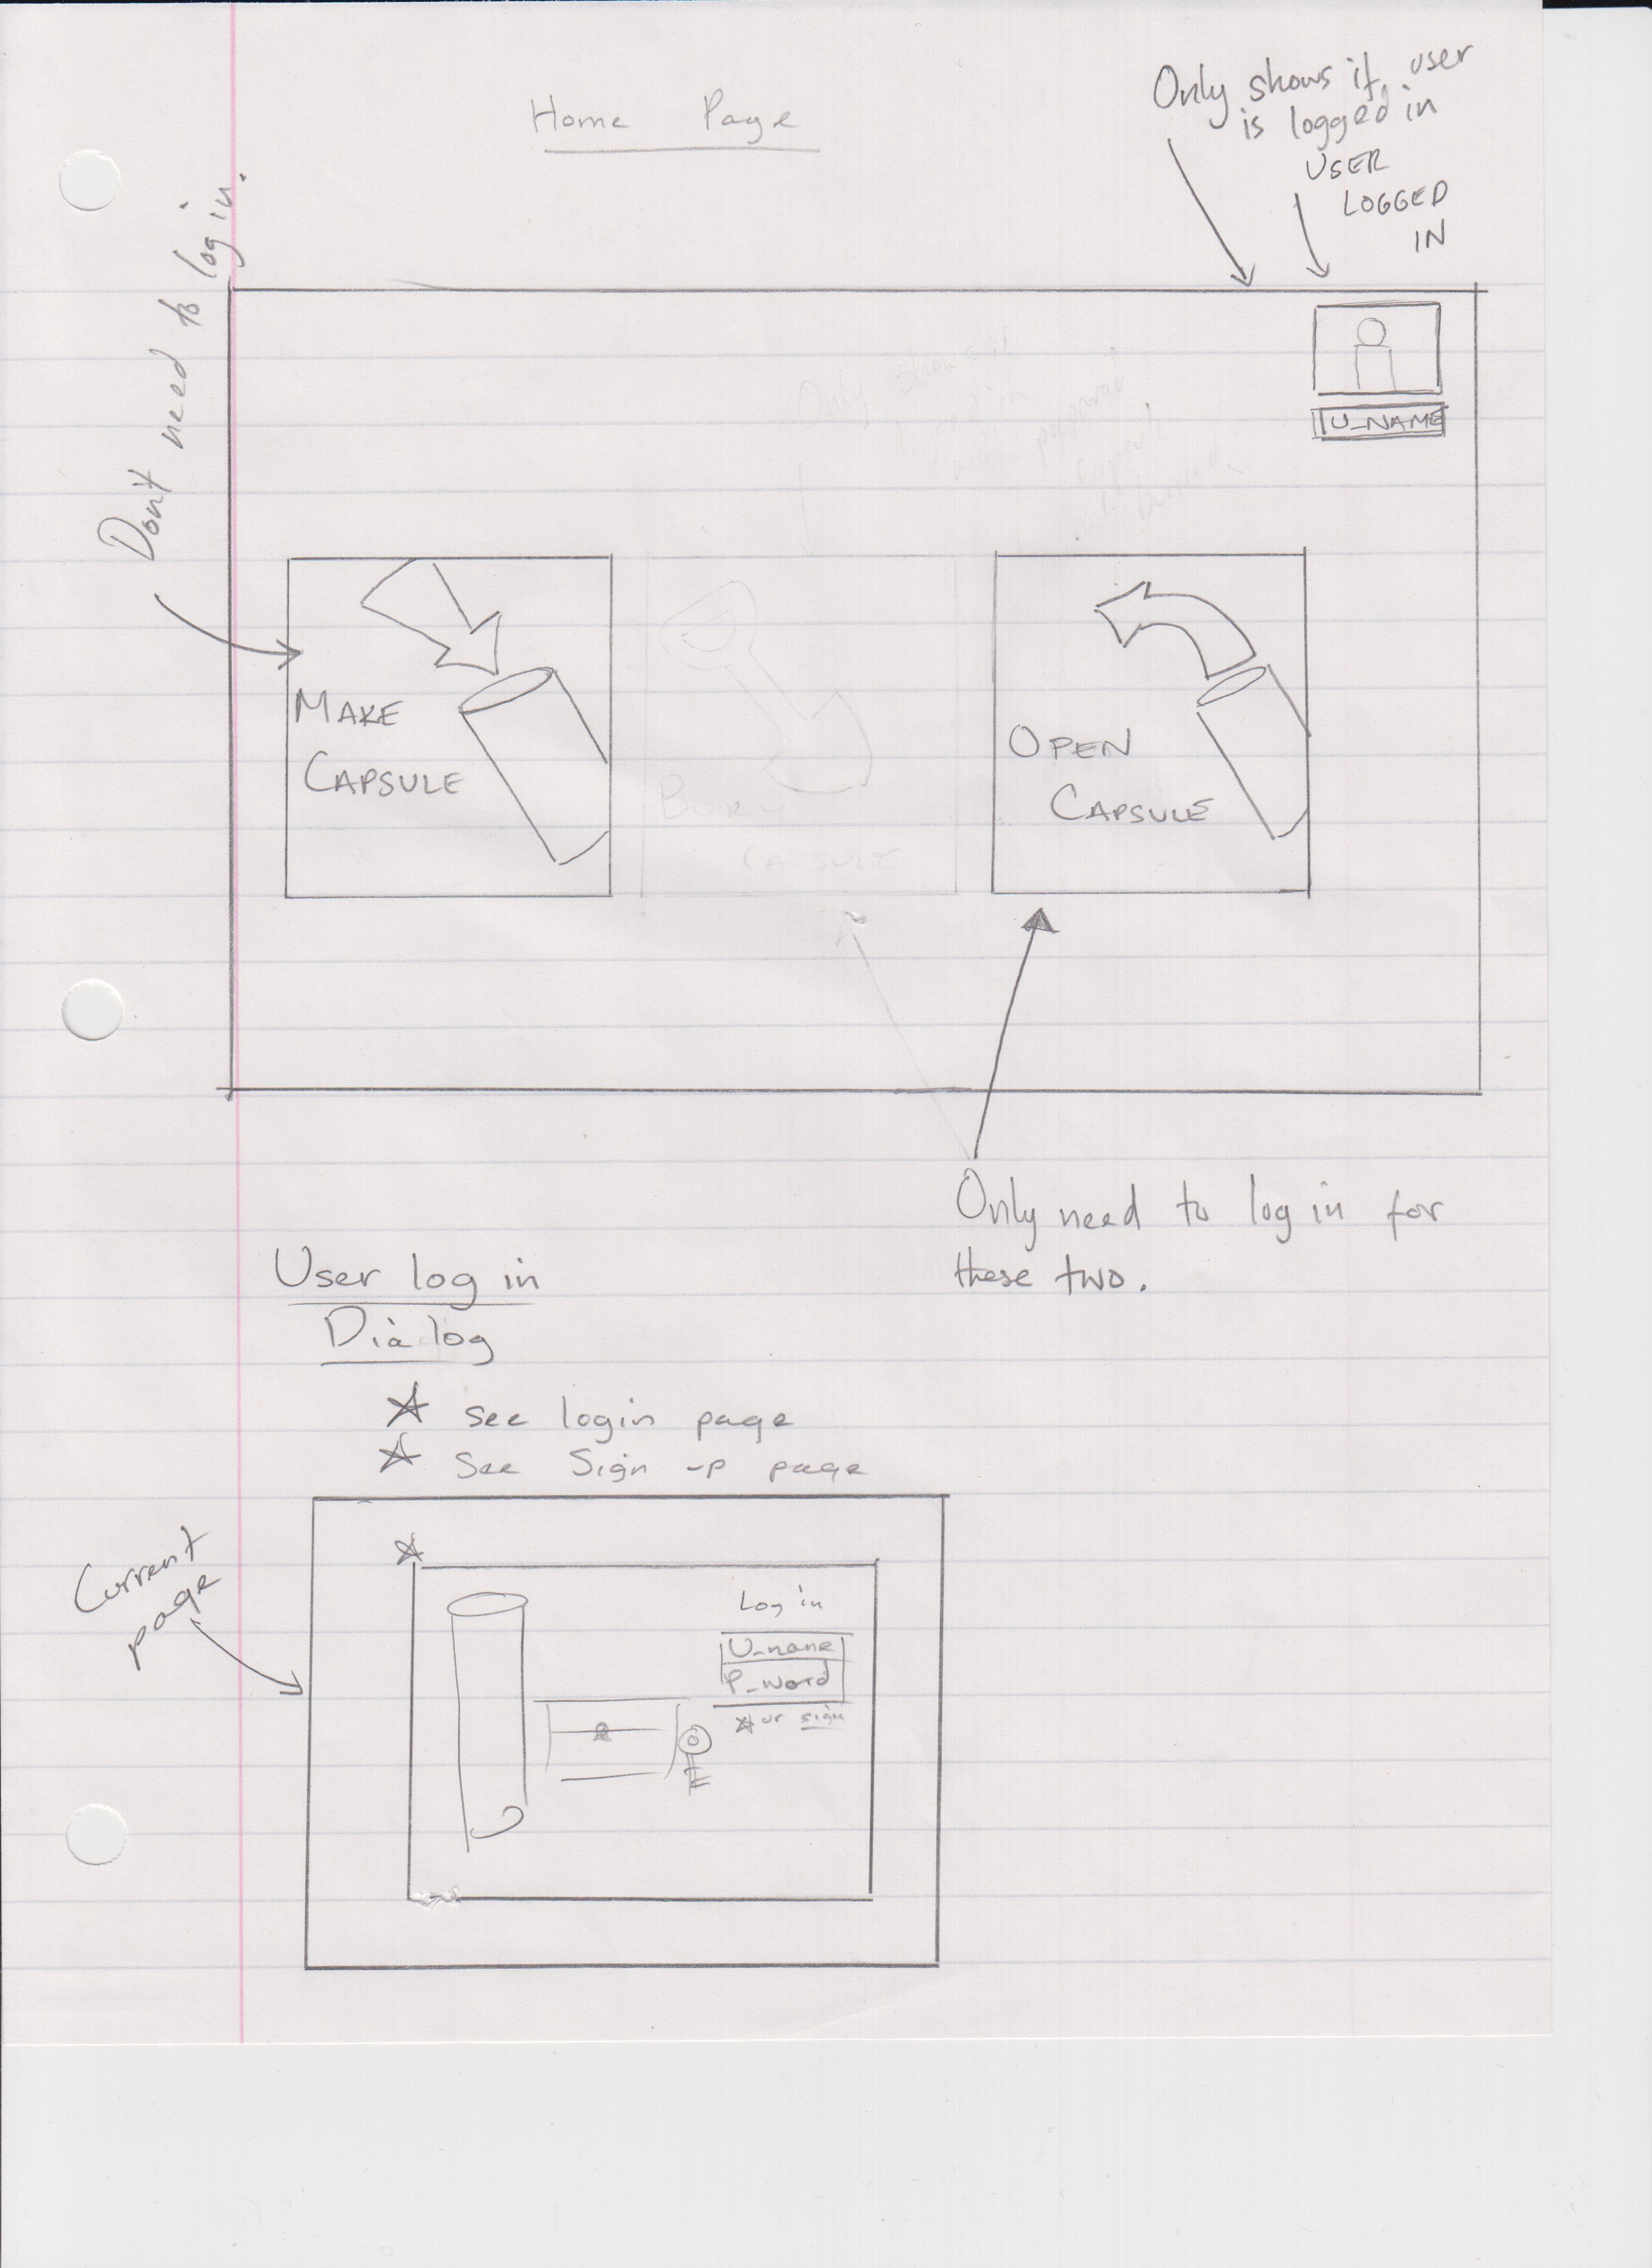 Home Page
Only shows if user
is logged in
USER
LOGGED
IN
Don't need to login.
U_NAME
Only shows if
capsule
MAKE
CAPSULE
BURY
CAPSULE
OPEN
CAPSULE
Only need to log in for
these two.
User log in
Dialog
see login page
See Sign -p page
Current
page
Log in
U_name
P_word
ur sign